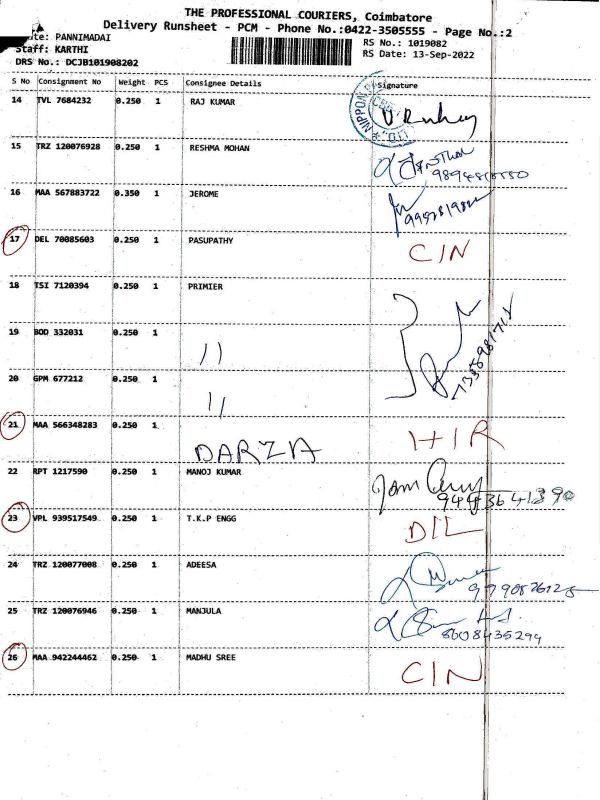 THE PROFESSIONAL COURIERS, Coimbatore
Delivery Runsheet - PCM - Phone No.:0422-3505555 - Page No.:2
PANNIMADAI
Staff: KARTHI
DRS No.: DCJB101908202
RS No.: 1019082
RS Date: 13-Sep-2022
S No Consignment No Weight PCS Consignee Details Signature
14 TVL 7684232 0.250 1 RAJ KUMAR
NIPPON
15 TRZ 120076928 0.250 1 RESHMA MOHAN
16 MAA 567883722 0.350 1 JEROME
17 DEL 70085603 0.250 1 PASUPATHY CIN
18 TSI 7120394 0.250 1 PRIMIER
19 BOD 332031 0.250 1 11
20 GPM 677212 0.250 1 11
21 MAA 566348283 0.250 1 DARZA HIR
22 RPT 1217590 0.250 1 MANOJ KUMAR
23 VPL 939517549 0.250 1 T.K.P ENGG DIL
24 TRZ 120077008 0.250 1 ADEESA
25 TRZ 120076946 0.250 1 MANJULA
8608435294
26 MAA 942244462 0.250 1 MADHU SREE CIN